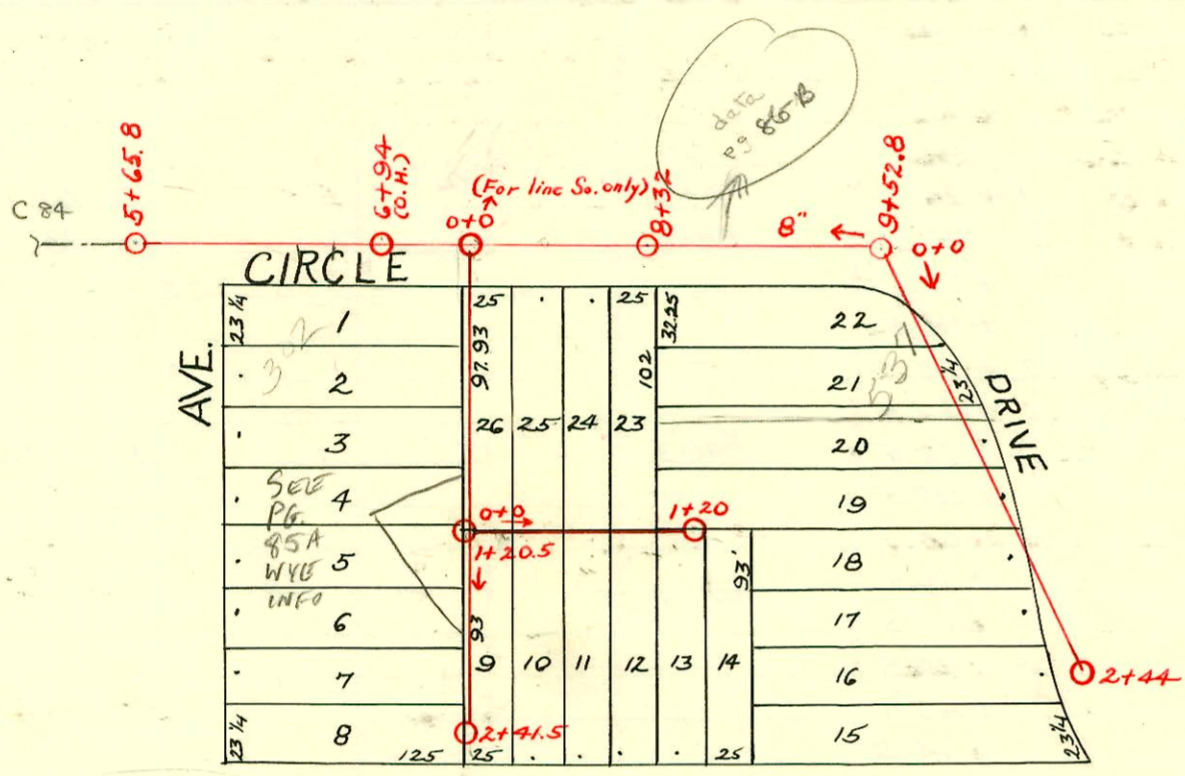 data
pg 86B
5+65.8
6+94
(O.H.)
(For line So. only)
0+0
8+32
8"
9+52.8
0+0
C 84
CIRCLE
AVE.
DRIVE
23 1/4
1
302
2
3
4
5
6
7
8
23 1/4
125
SEE
PG.
85A
WYE
INFO
25 . . 25
97.93
102
32.25
26 25 24 23
0+0
1+20.5
1+20
93
93'
9 10 11 12 13 14
2+41.5
25 . . . . 25
22
21
537
20
19
18
17
16
15
23 1/4
23 1/4
2+44